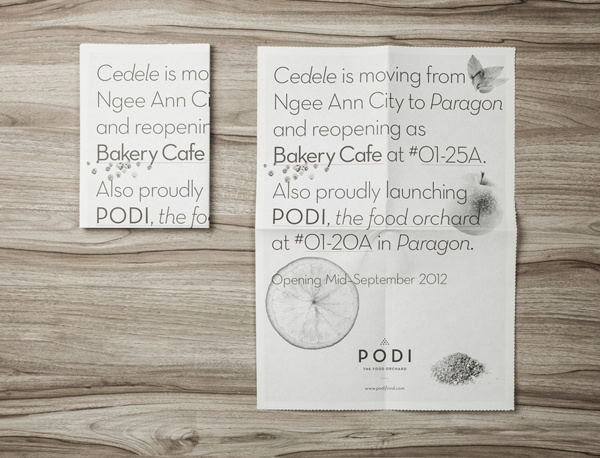 Cedele is mo
Ngee Ann Ci
and reopenin
Bakery Cafe
Also proudly
PODI, the fo
Cedele is moving from
Ngee Ann City to Paragon
and reopening as
Bakery Cafe at #01-25A.
Also proudly launching
PODI, the food orchard
at #01-20A in Paragon.
Opening Mid-September 2012
PODI
THE FOOD ORCHARD
www.podifood.com